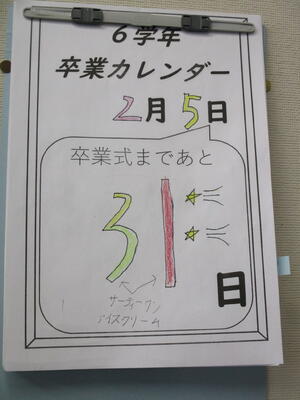 6学年
卒業カレンダー
2月5日
卒業式まであと
31
日
サーティーワン
アイスクリーム